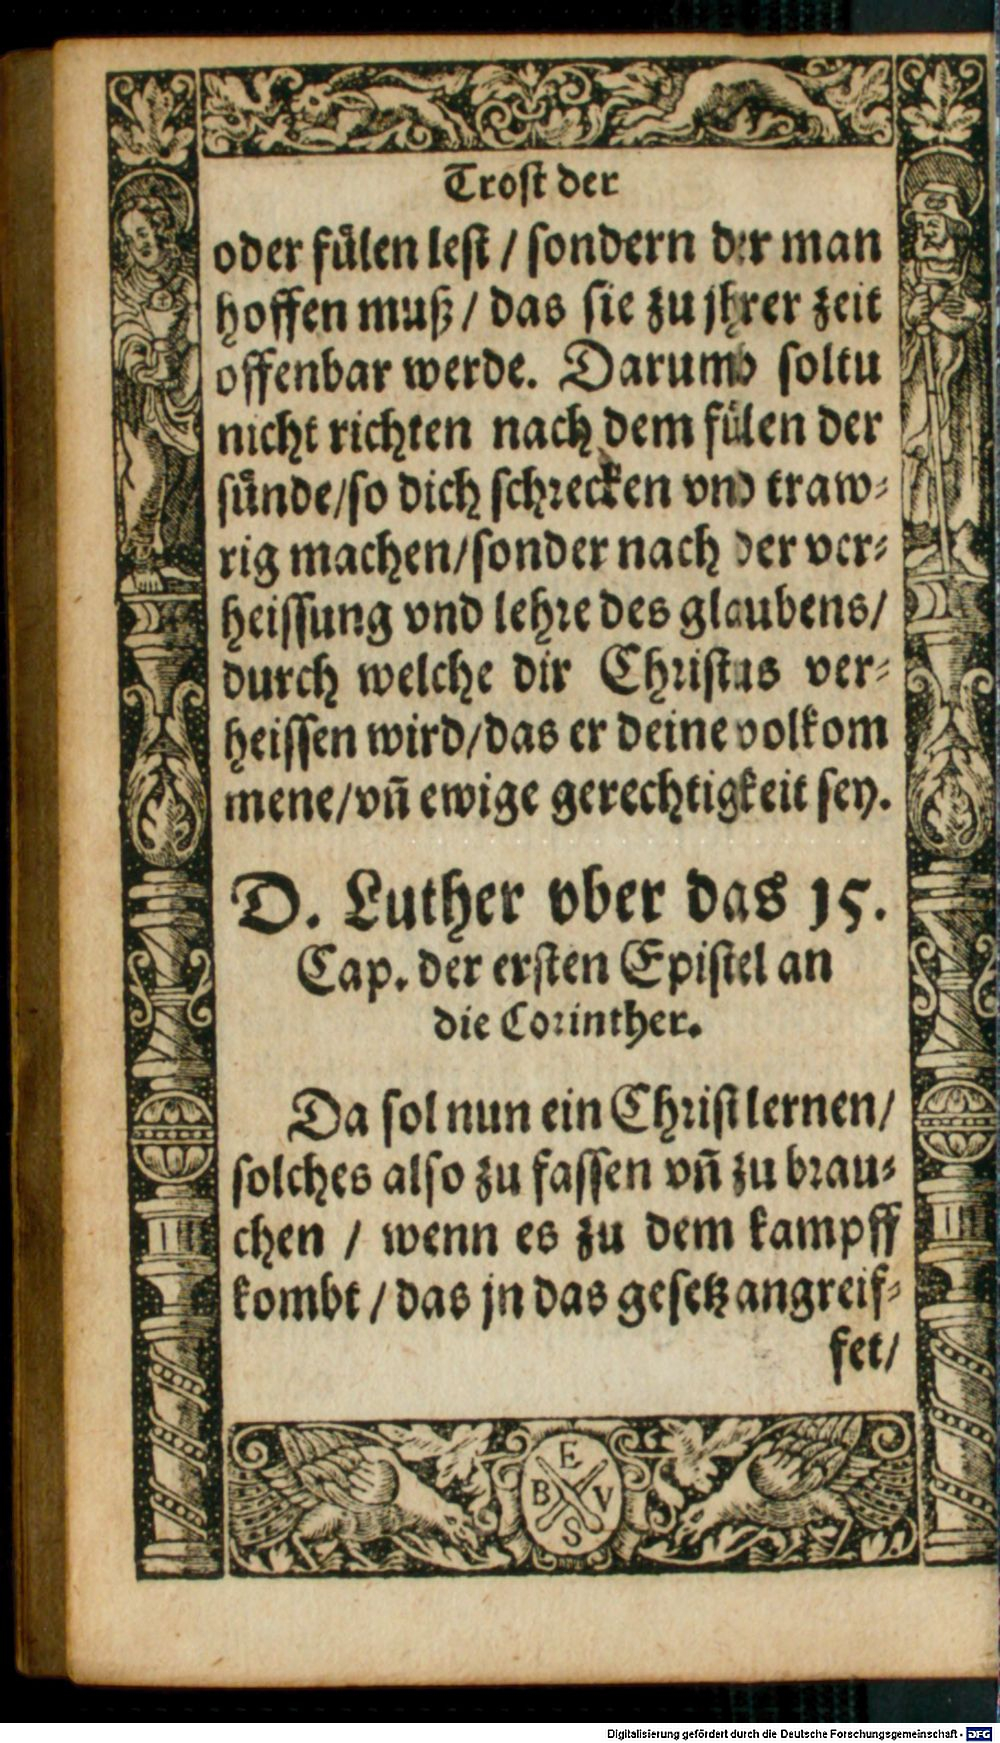 Trost der
oder fülen lest / sondern der man
hoffen muß / das sie zu jhrer zeit
offenbar werde. Darumb soltu
nicht richten nach dem fülen der
sünde/so dich schrecken vnd traw-
rig machen/sonder nach der ver-
heissung vnd lehre des glaubens/
durch welche dir Christus ver-
heissen wird/das er deine volkom
mene/vñ ewige gerechtigkeit sey.
D. Luther vber das 15.
Cap. der ersten Epistel an
die Corinther.
Da sol nun ein Christ lernen/
solches also zu fassen vñ zu brau-
chen / wenn es zu dem kampff
kombt / das jn das gesetz angreif-
fet/
E
B V
S
Digitalisierung gefördert durch die Deutsche Forschungsgemeinschaft - DFG